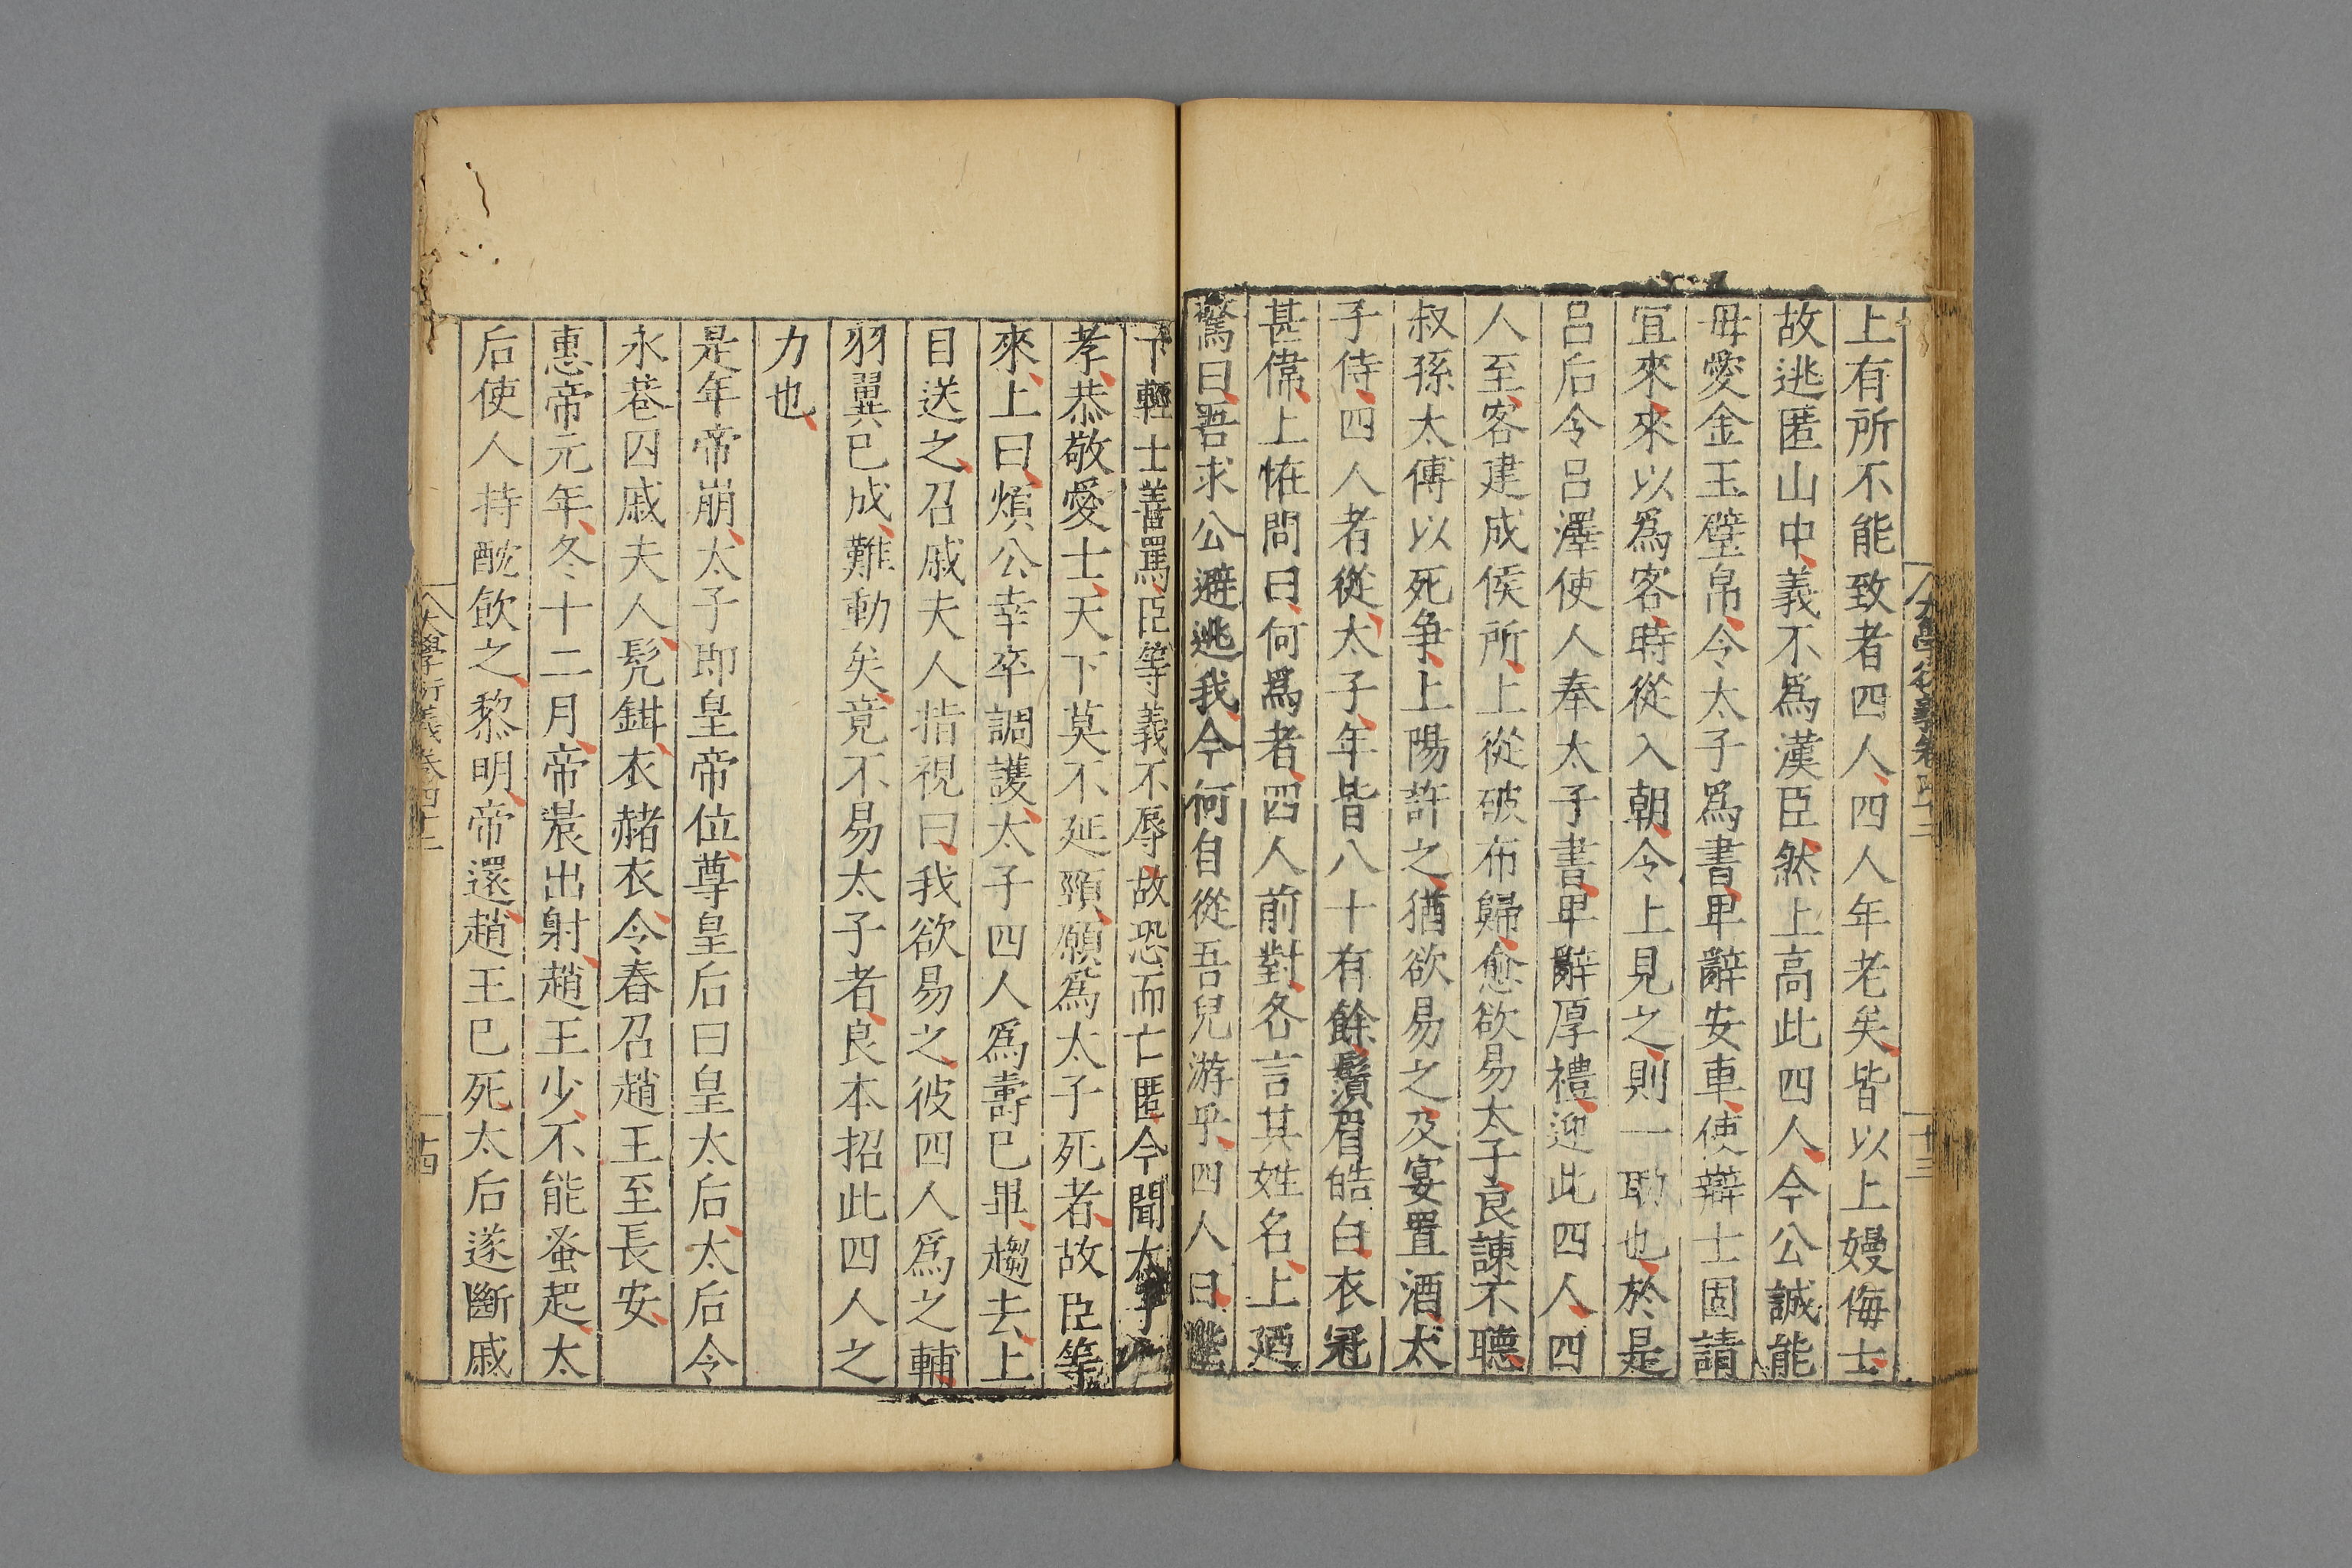 上有所不能致者四人四人年老矣皆以上嫚侮士
故逃匿山中義不爲漢臣然上高此四人今公誠能
毋愛金玉璧帛令太子爲書卑辭安車使辯士固請
宜來來以爲客時從入朝令上見之則一助也於是
呂后令呂澤使人奉太子書卑辭厚禮迎此四人四
人至客建成侯所上從破布歸愈欲易太子良諫不聽
叔孫太傅以死争上陽許之猶欲易之及宴置酒太
子侍四人者從太子年皆八十有餘鬚眉皓白衣冠
甚偉上恠問曰何爲者四人前對各言其姓名上廼
驚曰吾求公避逃我今何自從吾兒游乎四人曰陛
下輕士善罵臣等義不辱故恐而亡匿今聞太子
孝恭敬愛士天下莫不延頸願爲太子死者故臣等
來上曰煩公幸卒調護太子四人爲壽已畢趨去上
目送之召戚夫人指視曰我欲易之彼四人爲之輔
羽翼已成難動矣竟不易太子者良本招此四人之
力也
是年帝崩太子即皇帝位尊皇后曰皇太后太后令
永巷囚戚夫人髠鉗衣赭衣令舂召趙王至長安
惠帝元年冬十二月帝晨出射趙王少不能蚤起太
后使人持酖飲之黎明帝還趙王已死太后遂斷戚
大學衍義卷四十二
十三
大學衍義卷四十二
十四